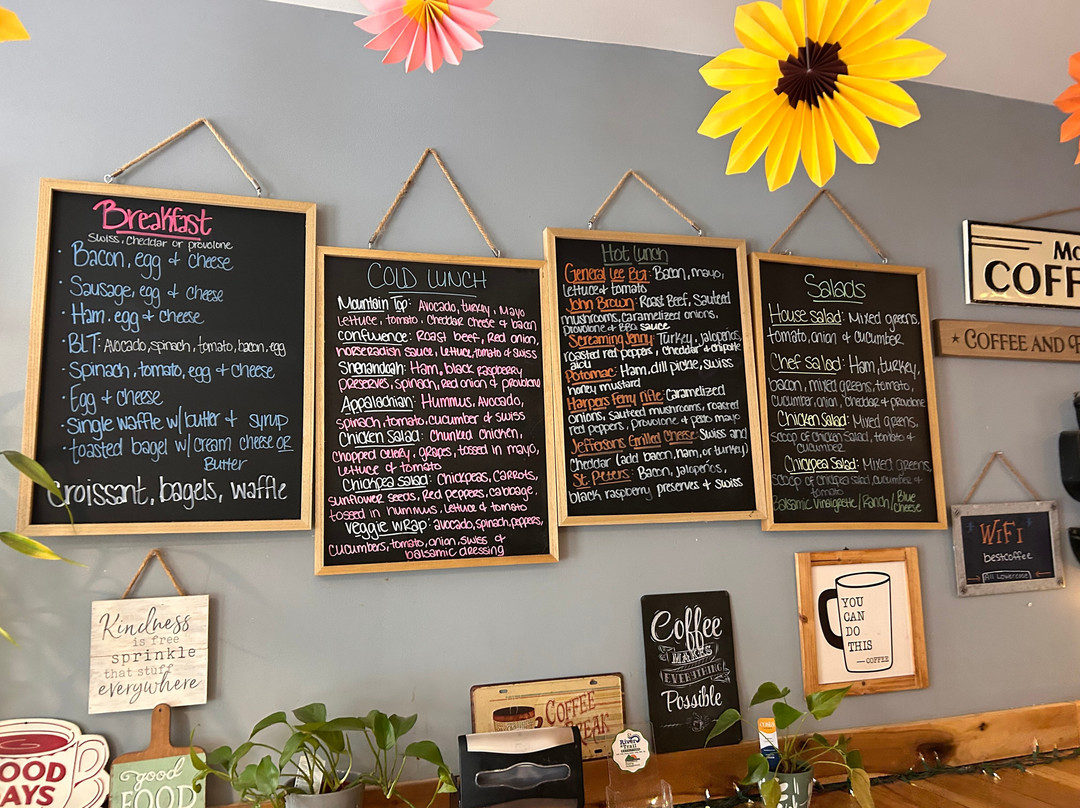 Breakfast
Swiss, Cheddar or provolone
· Bacon, egg & cheese
· Sausage, egg & cheese
· Ham, egg & cheese
· BLT: Avocado, spinach, tomato, bacon, egg
· Spinach, tomato, egg & cheese
· Egg & cheese
· Single waffle w/ butter & syrup
· toasted bagel w/ cream cheese or
Butter
Croissant, bagels, waffle
COLD LUNCH
Mountain Top: Avocado, turkey, Mayo
Lettuce, tomato, Cheddar cheese & bacon
Confluence: Roast beef, red onion,
horseradish sauce, lettuce, tomato & swiss
Shenandoah: Ham, black raspberry
preserves, spinach, red onion & provolone
Appalachian: Hummus, Avocado,
spinach, tomato, cucumber & swiss
Chicken Salad: Chunked chicken,
Chopped celery, grapes, tossed in mayo,
Lettuce & tomato
Chickpea salad: Chickpeas, Carrots,
sunflower seeds, Red peppers, cabbage,
tossed in hummus, Lettuce & tomato
Veggie Wrap: avocado, spinach, peppers,
cucumbers, tomato, onion, swiss &
balsamic dressing
Hot lunch
General Lee BLT: Bacon, mayo,
lettuce & tomato
John Brown: Roast Beef, Sauteed
mushrooms, Caramelized onions,
Provolone & BBQ sauce
Screaming Jenny: Turkey, jalapeños,
roasted red peppers, Cheddar & chipotle
aioli
Potomac: Ham, dill pickle, swiss
honey mustard
Harpers Ferry Rifle: Caramelized
onions, Sauteed mushrooms, roasted
red peppers, provolone & pesto mayo
Jeffersons Grilled Cheese: Swiss and
Cheddar (add bacon, ham, or turkey)
St. Peters: Bacon, jalapeños,
black raspberry preserves & swiss
Salads
House salad: Mixed greens,
tomato, onion & cucumber
Chef salad: Ham, turkey,
bacon, mixed greens, tomato,
cucumber, onion, cheddar & provolone
Chicken Salad: Mixed greens,
scoop of chicken Salad, tomato &
cucumber
Chickpea Salad: Mixed greens
scoop of chickpea salad, cucumber &
tomato
Balsamic Vinaigrette / Ranch / Blue
Cheese
COFF
COFFEE AND
WIFI
bestcoffee
All Lowercase
YOU
CAN
DO
THIS
—COFFEE
Coffee
MAKES
EVERYTHING
Possible
COFFEE
Kindness
is free
sprinkle
that stuff
everywhere
OOD
AYS
good
FOOD
River
Trail